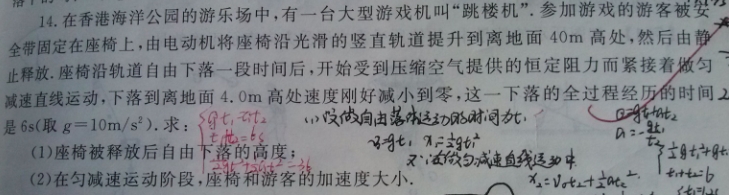 14. 在香港海洋公园的游乐场中,有一台大型游戏机叫“跳楼机”. 参加游戏的游客被安
全带固定在座椅上,由电动机将座椅沿光滑的竖直轨道提升到离地面 40m 高处,然后由静
止释放. 座椅沿轨道自由下落一段时间后,开始受到压缩空气提供的恒定阻力而紧接着做匀
减速直线运动,下落到离地面 4.0m 高处速度刚好减小到零,这一下落的全过程经历的时间
是 6s(取 g=10m/s²). 求:
(1)设做自由落体运动的时间为t₁
(1)座椅被释放后自由下落的高度;
v=gt₁ x₁=½gt₁²
又∵做匀减速直线运动
(2)在匀减速运动阶段,座椅和游客的加速度大小.
t₁+t₂=6